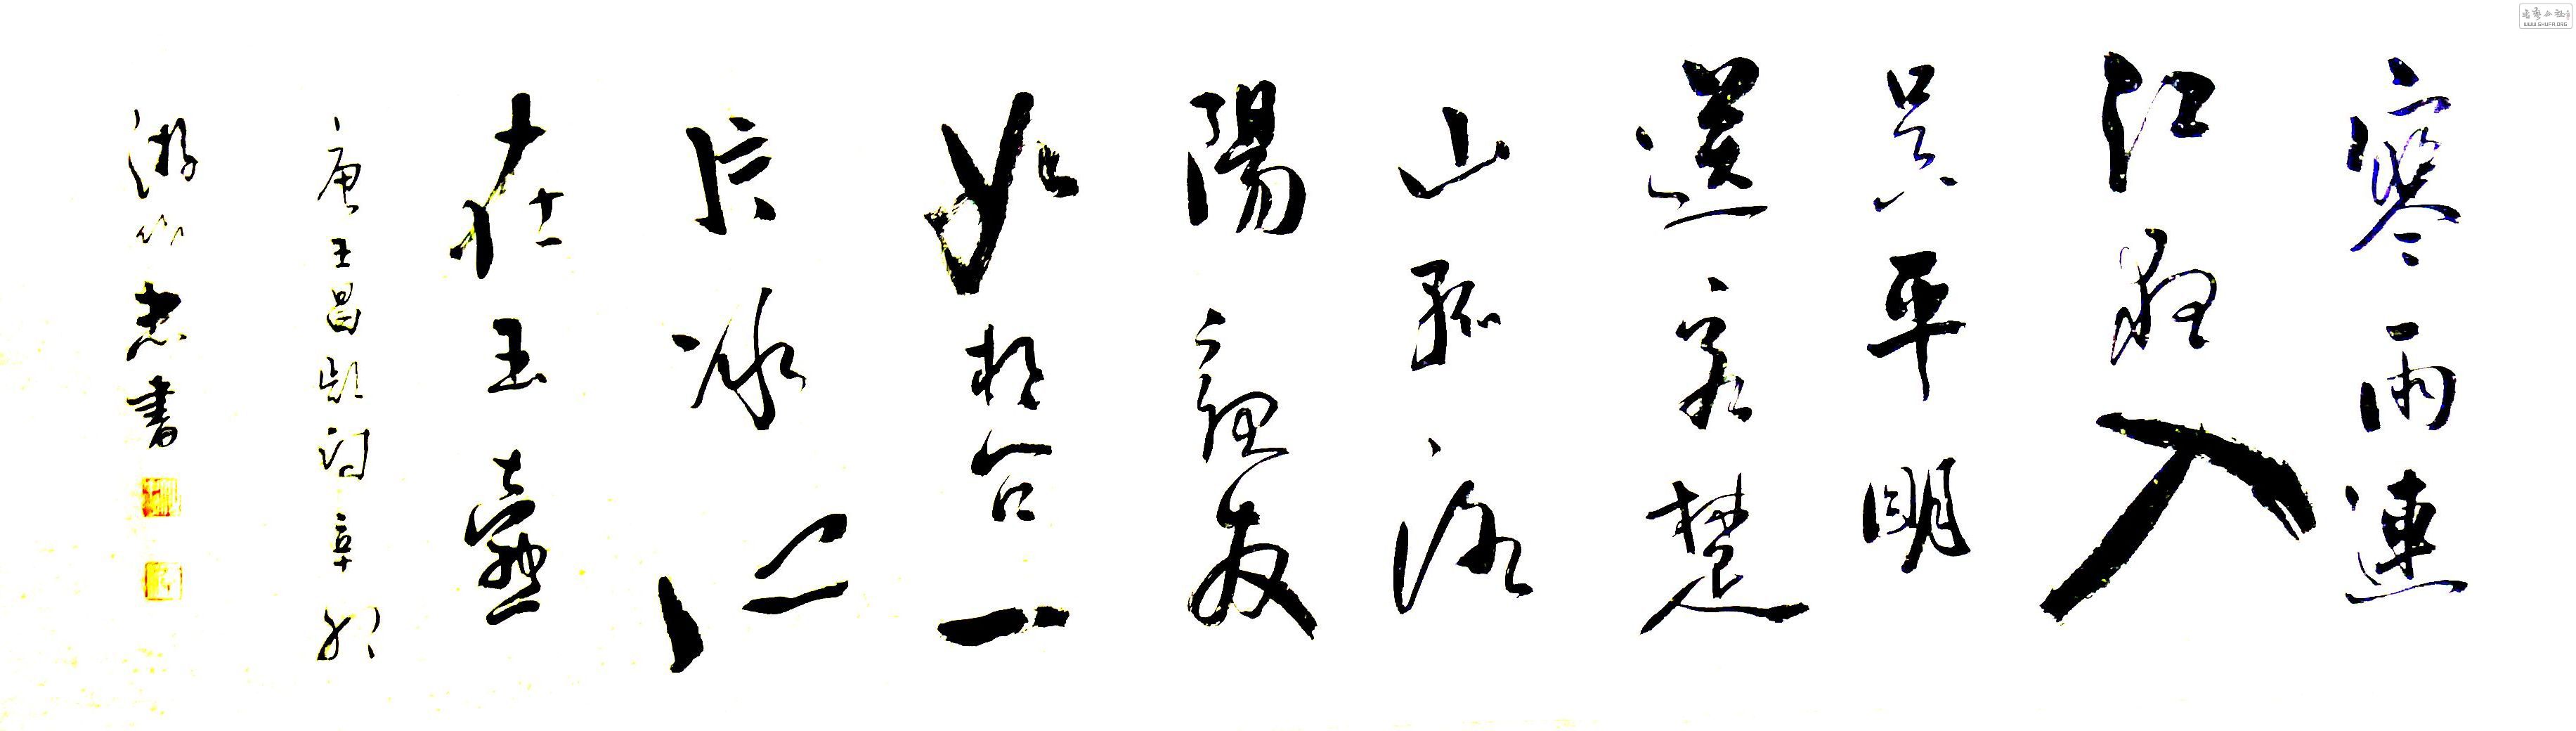 寒雨連
江夜入
吳平明
送客楚
山孤洛
陽親友
如相問一
片冰心
在玉壺
唐王昌齡詩辛卯
游忠書
WWW.SHUFA.ORG